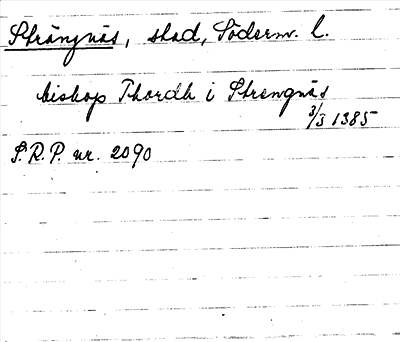 Strängnäs, stad, Söderm. l.
biskop Thordh i Strengnäs
3/3 1385
S.R.P. nr. 2090